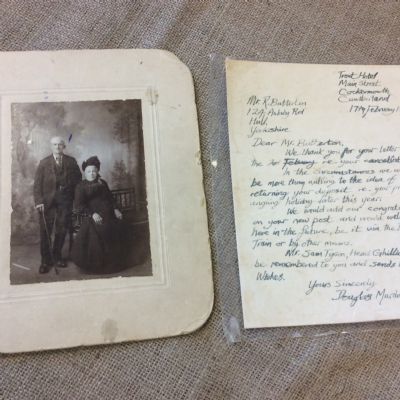 Trout Hotel
Main Street
Cockermouth
Cumberland
17th February 1
Mr. R. Butterton
12A,
Hull,
Yorkshire
Dear Mr. Butterton,
We thank you for your letter
the re your
In the circumstances we w
be more than willing to the idea of
returning your deposit re. your
holiday later this year.
We would add our congra
on your new post and would wel
here in the future, be it via the
Train or by other means.
Mr. Sam Tyson, Head Ghillie
be remembered to you and sends
Wishes.
Yours Sincerely
Douglas